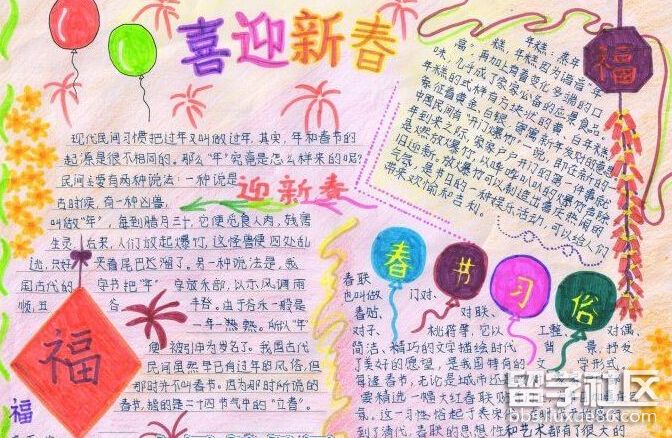 喜迎新春
现代民间习惯把过年又叫做过年,其实,年和春节的
起源是很不相同的。那么“年”究竟是怎么样来的呢?
民间主要有两种说法:一种说是
古时候,有一种凶兽,
叫做“年”,每到腊月三十,它便
觅食人肉,残害
生灵
后来,人们放起爆竹,这怪兽便四处乱
迎新春
夹着尾巴
溜了。另一种说法是,我
国古代的
字把“年”字放禾部,以示风调雨
顺,五谷
丰登。由于谷禾一般是
一年一熟。所以“年”
便被引申为岁名了。我国古代
民间虽然早已有过年的风俗,但
那时并不叫春节。因为那时所说的
春节,指的是二十四节气中的“立春”。
福
福
年糕:蒸年
糕,年糕因为谐音“年
高”,再加上有着变化多端的口
味,几乎成了家家必备的应景食品。
年糕的式样有方块状的黄、白年糕,
象征着黄金、白银,寄寓新年发财的意思。
中国民间有“开门爆竹”一说。即在新的一
年到来之际,家家户户开门的第一件事就
是燃放爆竹,以哔哔叭叭的爆竹声除
旧迎新。放爆竹可以创造出喜庆热闹的
气氛,是节日的一种娱乐活动,可以给人们
带来欢愉和吉利。
福
春节习俗
春联
也叫做门对、
春贴、对联、
对子、桃符等,它以工整、对偶、
简洁、精巧的文字描绘时代背景,抒发
了美好的愿望,是我国特有的文学形式。
每逢春节,无论是城市还
要精选一幅大红春联贴
气氛。这一习俗起于宋
到了清代,春联的思想性和艺术都有了很大的
留学社区
bbs.liuxue86.com